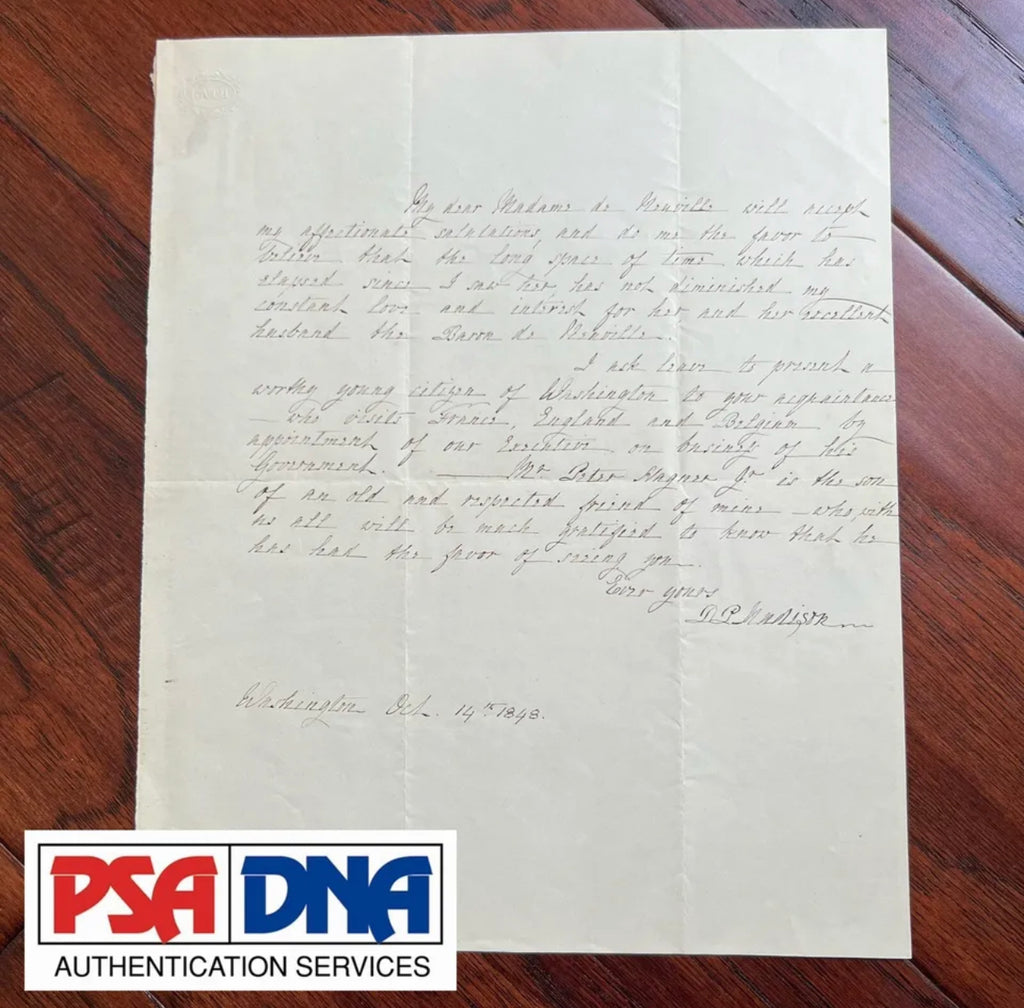 My dear Madame de Neuville will accept
my affectionate salutations, and do me the favor to
believe that the long space of time which has
elapsed since I saw her has not diminished my
constant love and interest for her and her excellent
husband the Baron de Neuville.
I ask leave to present a
worthy young citizen of Washington to your acquaintance
— who visits France, England and Belgium by
appointment of our Executive on business of his
Government. — Mr. Peter Hagner Jr is the son
of an old and respected friend of mine — who, with
us all will be much gratified to know that he
has had the favor of seeing you.
Ever yours
D. P. Madison
Washington Oct. 14th 1848.
PSA DNA
AUTHENTICATION SERVICES